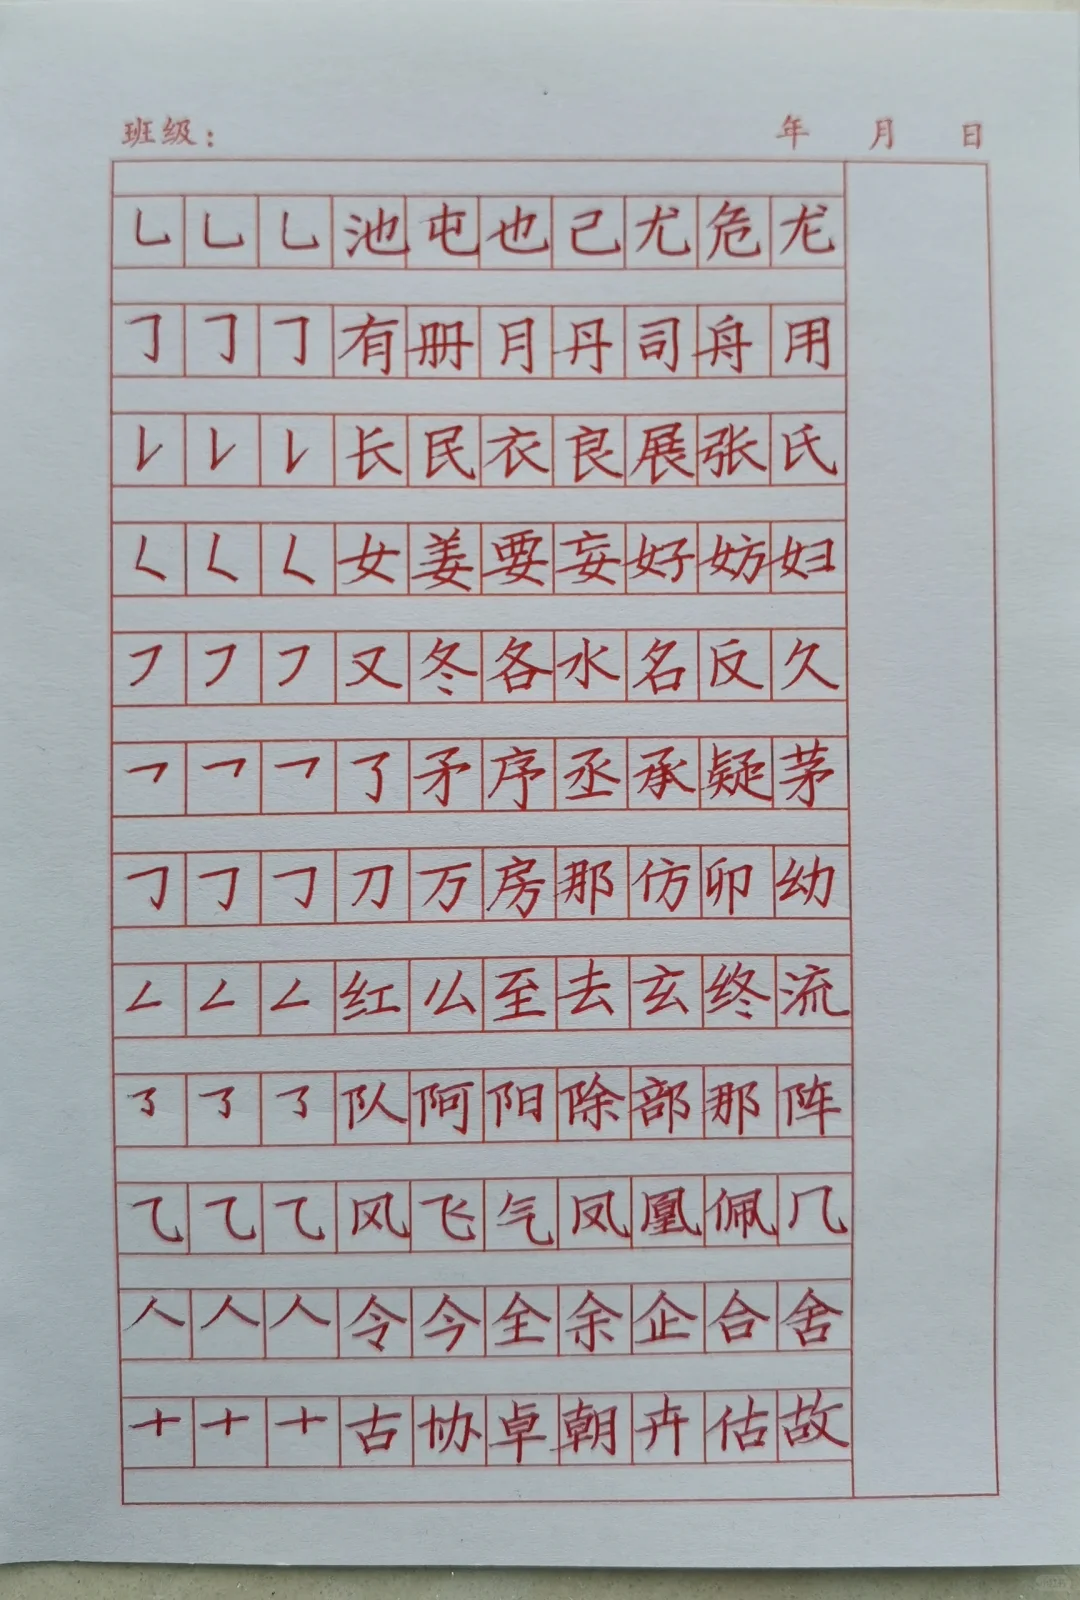 班级： 年 月 日
乚 乚 乚 池 屯 也 己 尤 危 尨
𠃌 𠃌 𠃌 有 册 月 丹 司 舟 用
𠄌 𠄌 𠄌 长 民 衣 良 展 张 氏
𡿨 𡿨 𡿨 女 姜 要 妄 好 妨 妇
㇇ ㇇ ㇇ 又 冬 各 水 名 反 久
乛 乛 乛 了 矛 序 丞 承 疑 茅
𠃌 𠃌 𠃌 刀 万 房 那 仿 卯 幼
𠃋 𠃋 𠃋 红 么 至 去 玄 终 流
㇌ ㇌ ㇌ 队 阿 阳 除 部 那 阵
⺄ ⺄ ⺄ 风 飞 气 凤 凰 佩 几
人 人 人 令 今 全 余 企 合 舍
十 十 十 古 协 卓 朝 卉 估 故